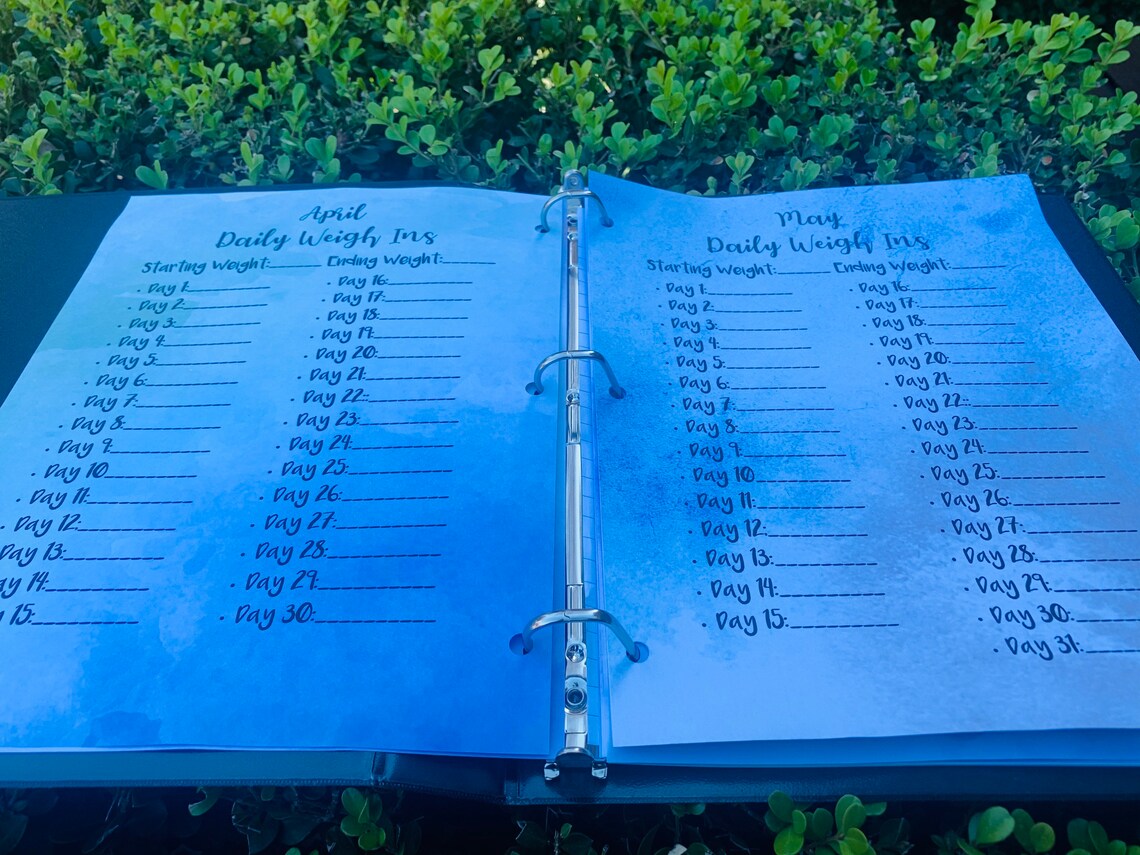 April
Daily Weigh Ins
Starting Weight:______ Ending Weight:______
• Day 1:__________
• Day 2:__________
• Day 3:__________
• Day 4:__________
• Day 5:__________
• Day 6:__________
• Day 7:__________
• Day 8:__________
• Day 9:__________
• Day 10:__________
• Day 11:__________
• Day 12:__________
Day 13:__________
ay 14:__________
15:__________
• Day 16:__________
• Day 17:__________
• Day 18:__________
• Day 19:__________
• Day 20:__________
• Day 21:__________
• Day 22:__________
• Day 23:__________
• Day 24:__________
• Day 25:__________
• Day 26:__________
• Day 27:__________
• Day 28:__________
• Day 29:__________
• Day 30:__________
May
Daily Weigh Ins
Starting Weight:______ Ending Weight:______
• Day 1:__________
• Day 2:__________
• Day 3:__________
• Day 4:__________
• Day 5:__________
• Day 6:__________
• Day 7:__________
• Day 8:__________
• Day 9:__________
• Day 10:__________
• Day 11:__________
• Day 12:__________
• Day 13:__________
• Day 14:__________
• Day 15:__________
• Day 16:__________
• Day 17:__________
• Day 18:__________
• Day 19:__________
• Day 20:__________
• Day 21:__________
• Day 22:__________
• Day 23:__________
• Day 24:__________
• Day 25:__________
• Day 26:__________
• Day 27:__________
• Day 28:__________
• Day 29:__________
• Day 30:__________
• Day 31:__________